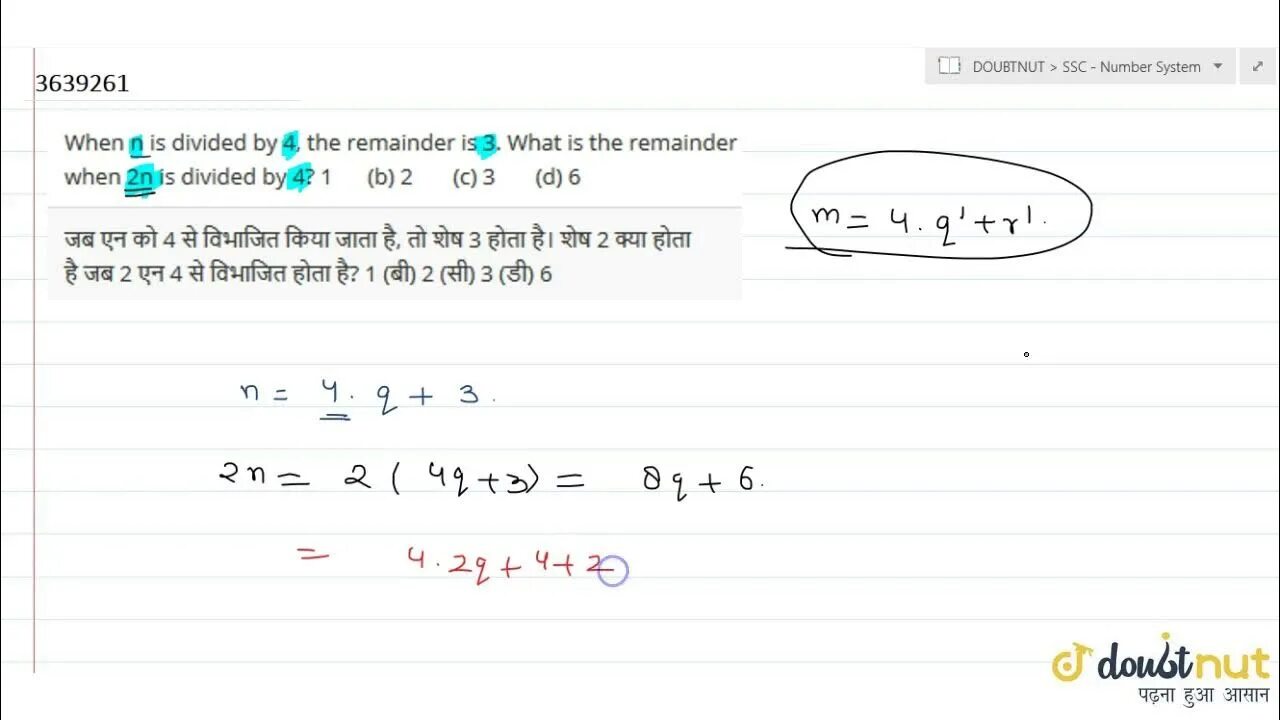 DOUBTNUT > SSC - Number System
3639261
When n is divided by 4, the remainder is 3. What is the remainder
when 2n is divided by 4? 1 (b) 2 (c) 3 (d) 6
जब एन को 4 से विभाजित किया जाता है, तो शेष 3 होता है। शेष 2 क्या होता
है जब 2 एन 4 से विभाजित होता है? 1 (बी) 2 (सी) 3 (डी) 6
m = 4.q' + r'.
n = 4. q + 3.
2n = 2 ( 4q+3) = 8q + 6.
= 4.2q + 4+2
doubtnut
पढ़ना हुआ आसान